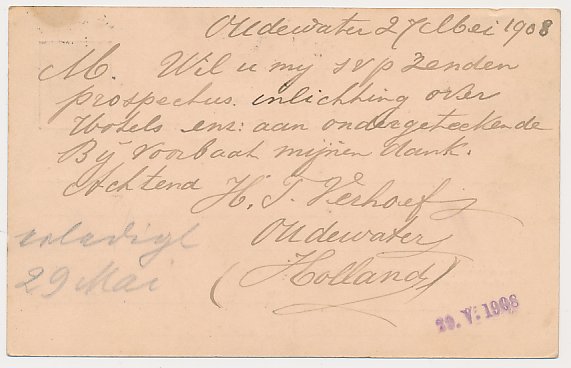 Oudewater 27 Mei 1908
M. Wil u mij s v p zenden
prospectus inlichting over
Hotels enz: aan ondergeteekende
Bij voorbaat mijnen dank.
Achtend H. J. Verhoef
Oudewater
(Holland)
erledigt
29 Mai
29. V. 1908